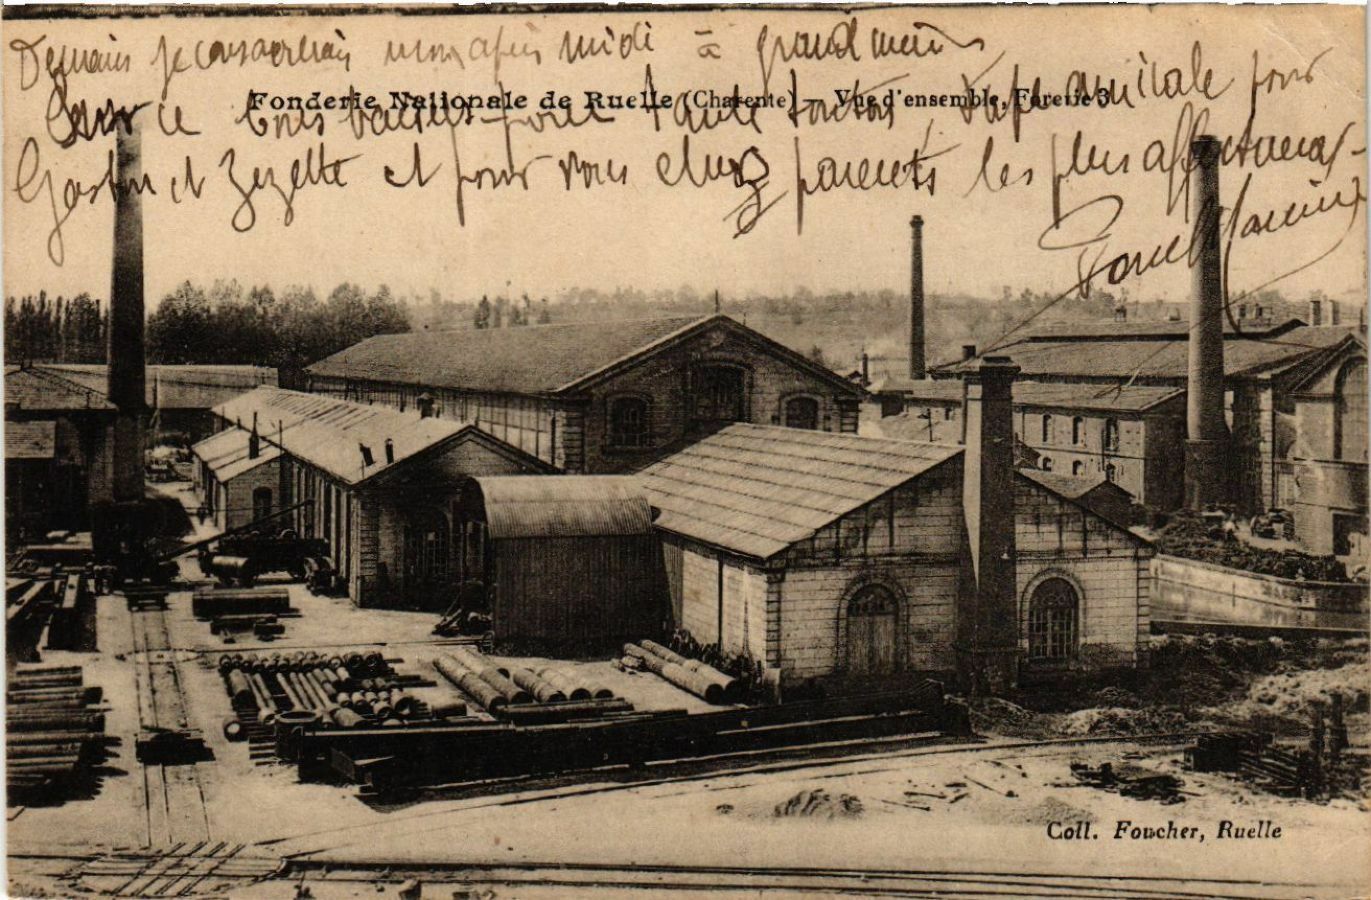 Demain je consacrerai mon après midi à grand mère
Fonderie Nationale de Ruelle (Charente) — Vue d'ensemble, Forerie 3
Sur ce bons baisers pour tante tonton, amicale pour
Gaston et Zezette et pour vous chers parents les plus affectueux
Coll. Foucher, Ruelle